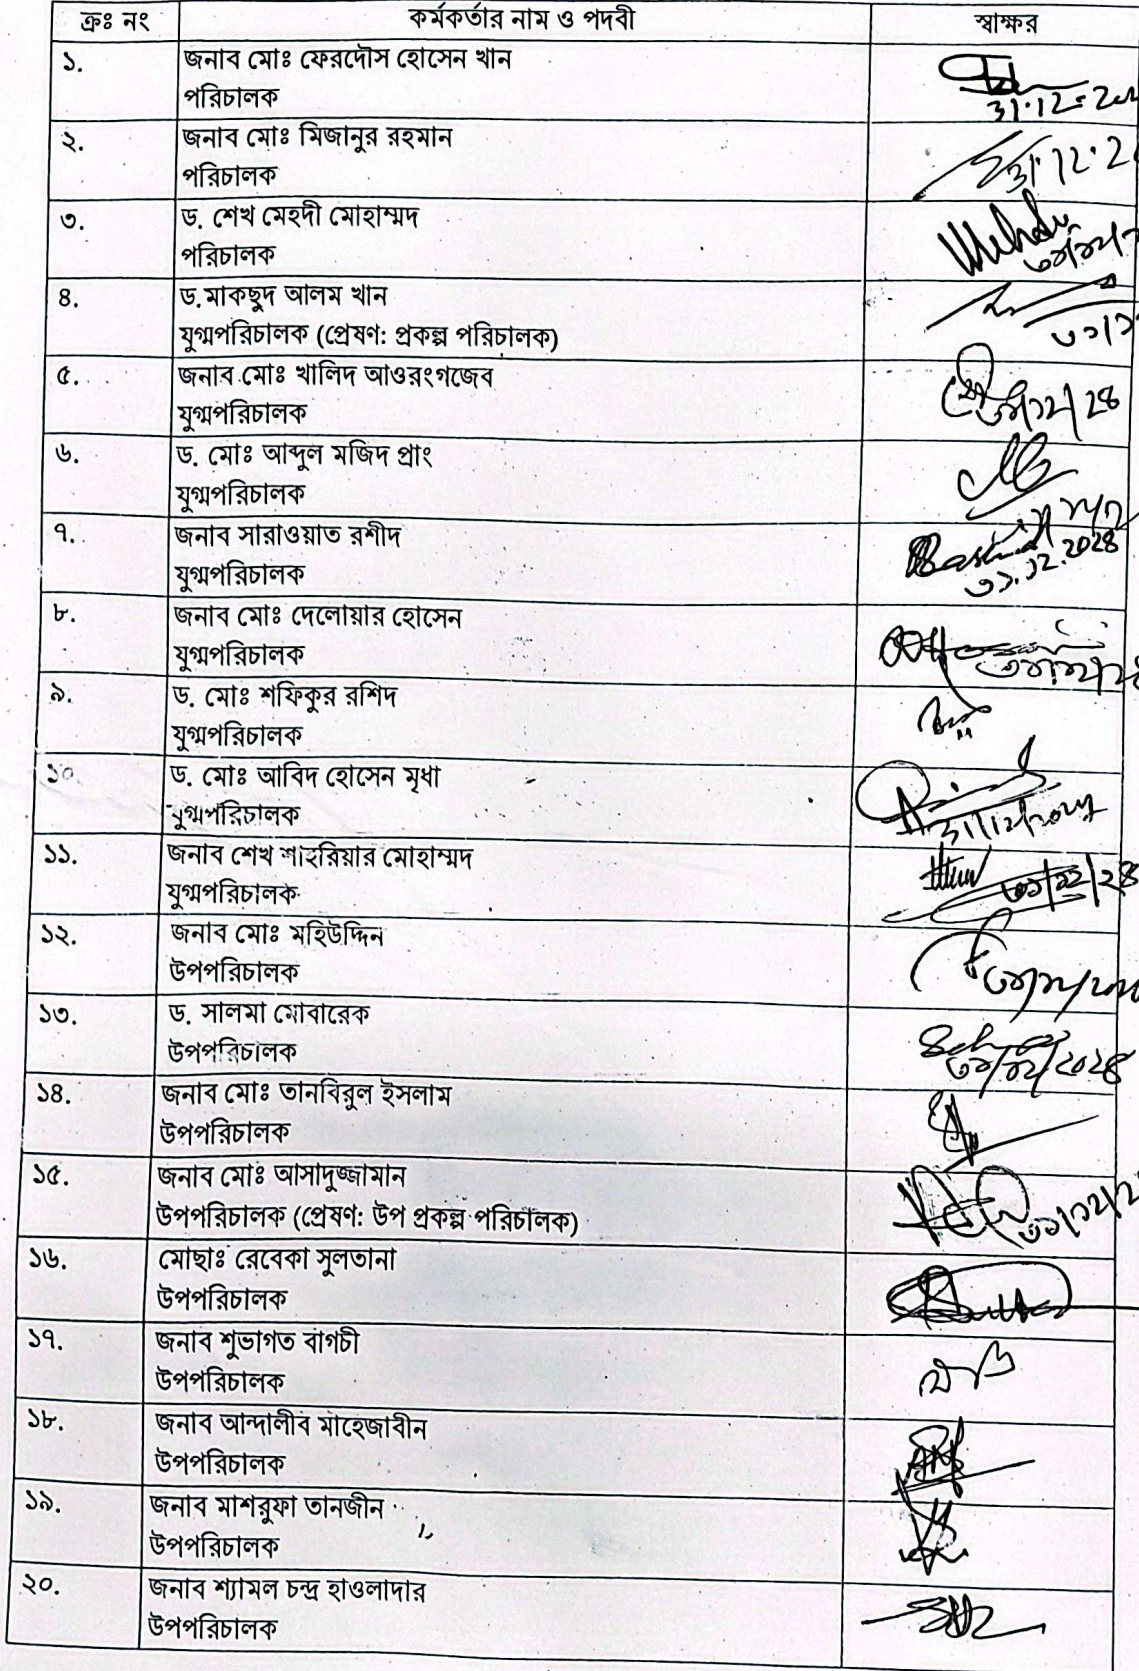 ক্রঃ নং কর্মকর্তার নাম ও পদবী স্বাক্ষর
১. জনাব মোঃ ফেরদৌস হোসেন খান
পরিচালক
31.12.20
২. জনাব মোঃ মিজানুর রহমান
পরিচালক
31.12.2
৩. ড. শেখ মেহদী মোহাম্মদ
পরিচালক
৪. ড.মাকছুদ আলম খান
যুগ্মপরিচালক (প্রেষণ: প্রকল্প পরিচালক)
৫. জনাব মোঃ খালিদ আওরংগজেব
যুগ্মপরিচালক
৩১/১২/২৪
৬. ড. মোঃ আব্দুল মজিদ প্রাং
যুগ্মপরিচালক
৭. জনাব সারাওয়াত রশীদ
যুগ্মপরিচালক
Rashid
৩১.১২.২০২৪
৮. জনাব মোঃ দেলোয়ার হোসেন
যুগ্মপরিচালক
৯. ড. মোঃ শফিকুর রশিদ
যুগ্মপরিচালক
১০. ড. মোঃ আবিদ হোসেন মৃধা
যুগ্মপরিচালক
31/12/2024
১১. জনাব শেখ শাহরিয়ার মোহাম্মদ
যুগ্মপরিচালক
৩১/১২/২৪
১২. জনাব মোঃ মহিউদ্দিন
উপপরিচালক
১৩. ড. সালমা মোবারেক
উপপরিচালক
৩১/১২/২০২৪
১৪. জনাব মোঃ তানবিরুল ইসলাম
উপপরিচালক
১৫. জনাব মোঃ আসাদুজ্জামান
উপপরিচালক (প্রেষণ: উপ প্রকল্প পরিচালক)
১৬. মোছাঃ রেবেকা সুলতানা
উপপরিচালক
১৭. জনাব শুভাগত বাগচী
উপপরিচালক
১৮. জনাব আন্দালীব মাহেজাবীন
উপপরিচালক
১৯. জনাব মাশরুফা তানজীন
উপপরিচালক
২০. জনাব শ্যামল চন্দ্র হাওলাদার
উপপরিচালক